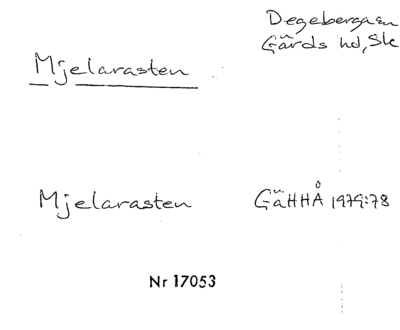 Degeberga sn
Gärds hd, Sk
Mjelarasten
Mjelarasten
GäHHÅ 1979:78
Nr 17053